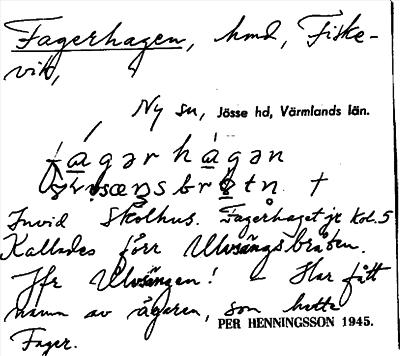 Fagerhagen, hmd, Fiske-
vik,
Ny sn, Jösse hd, Värmlands län.
fágərhàgən
†
Invid Skolhus. Fagerhaget jr kol. 5
Kallades förr Ulvsängsbråten.
Jfr Ulvsängen! – Har fått
namn av ägaren, som hette
Fager.
PER HENNINGSSON 1945.